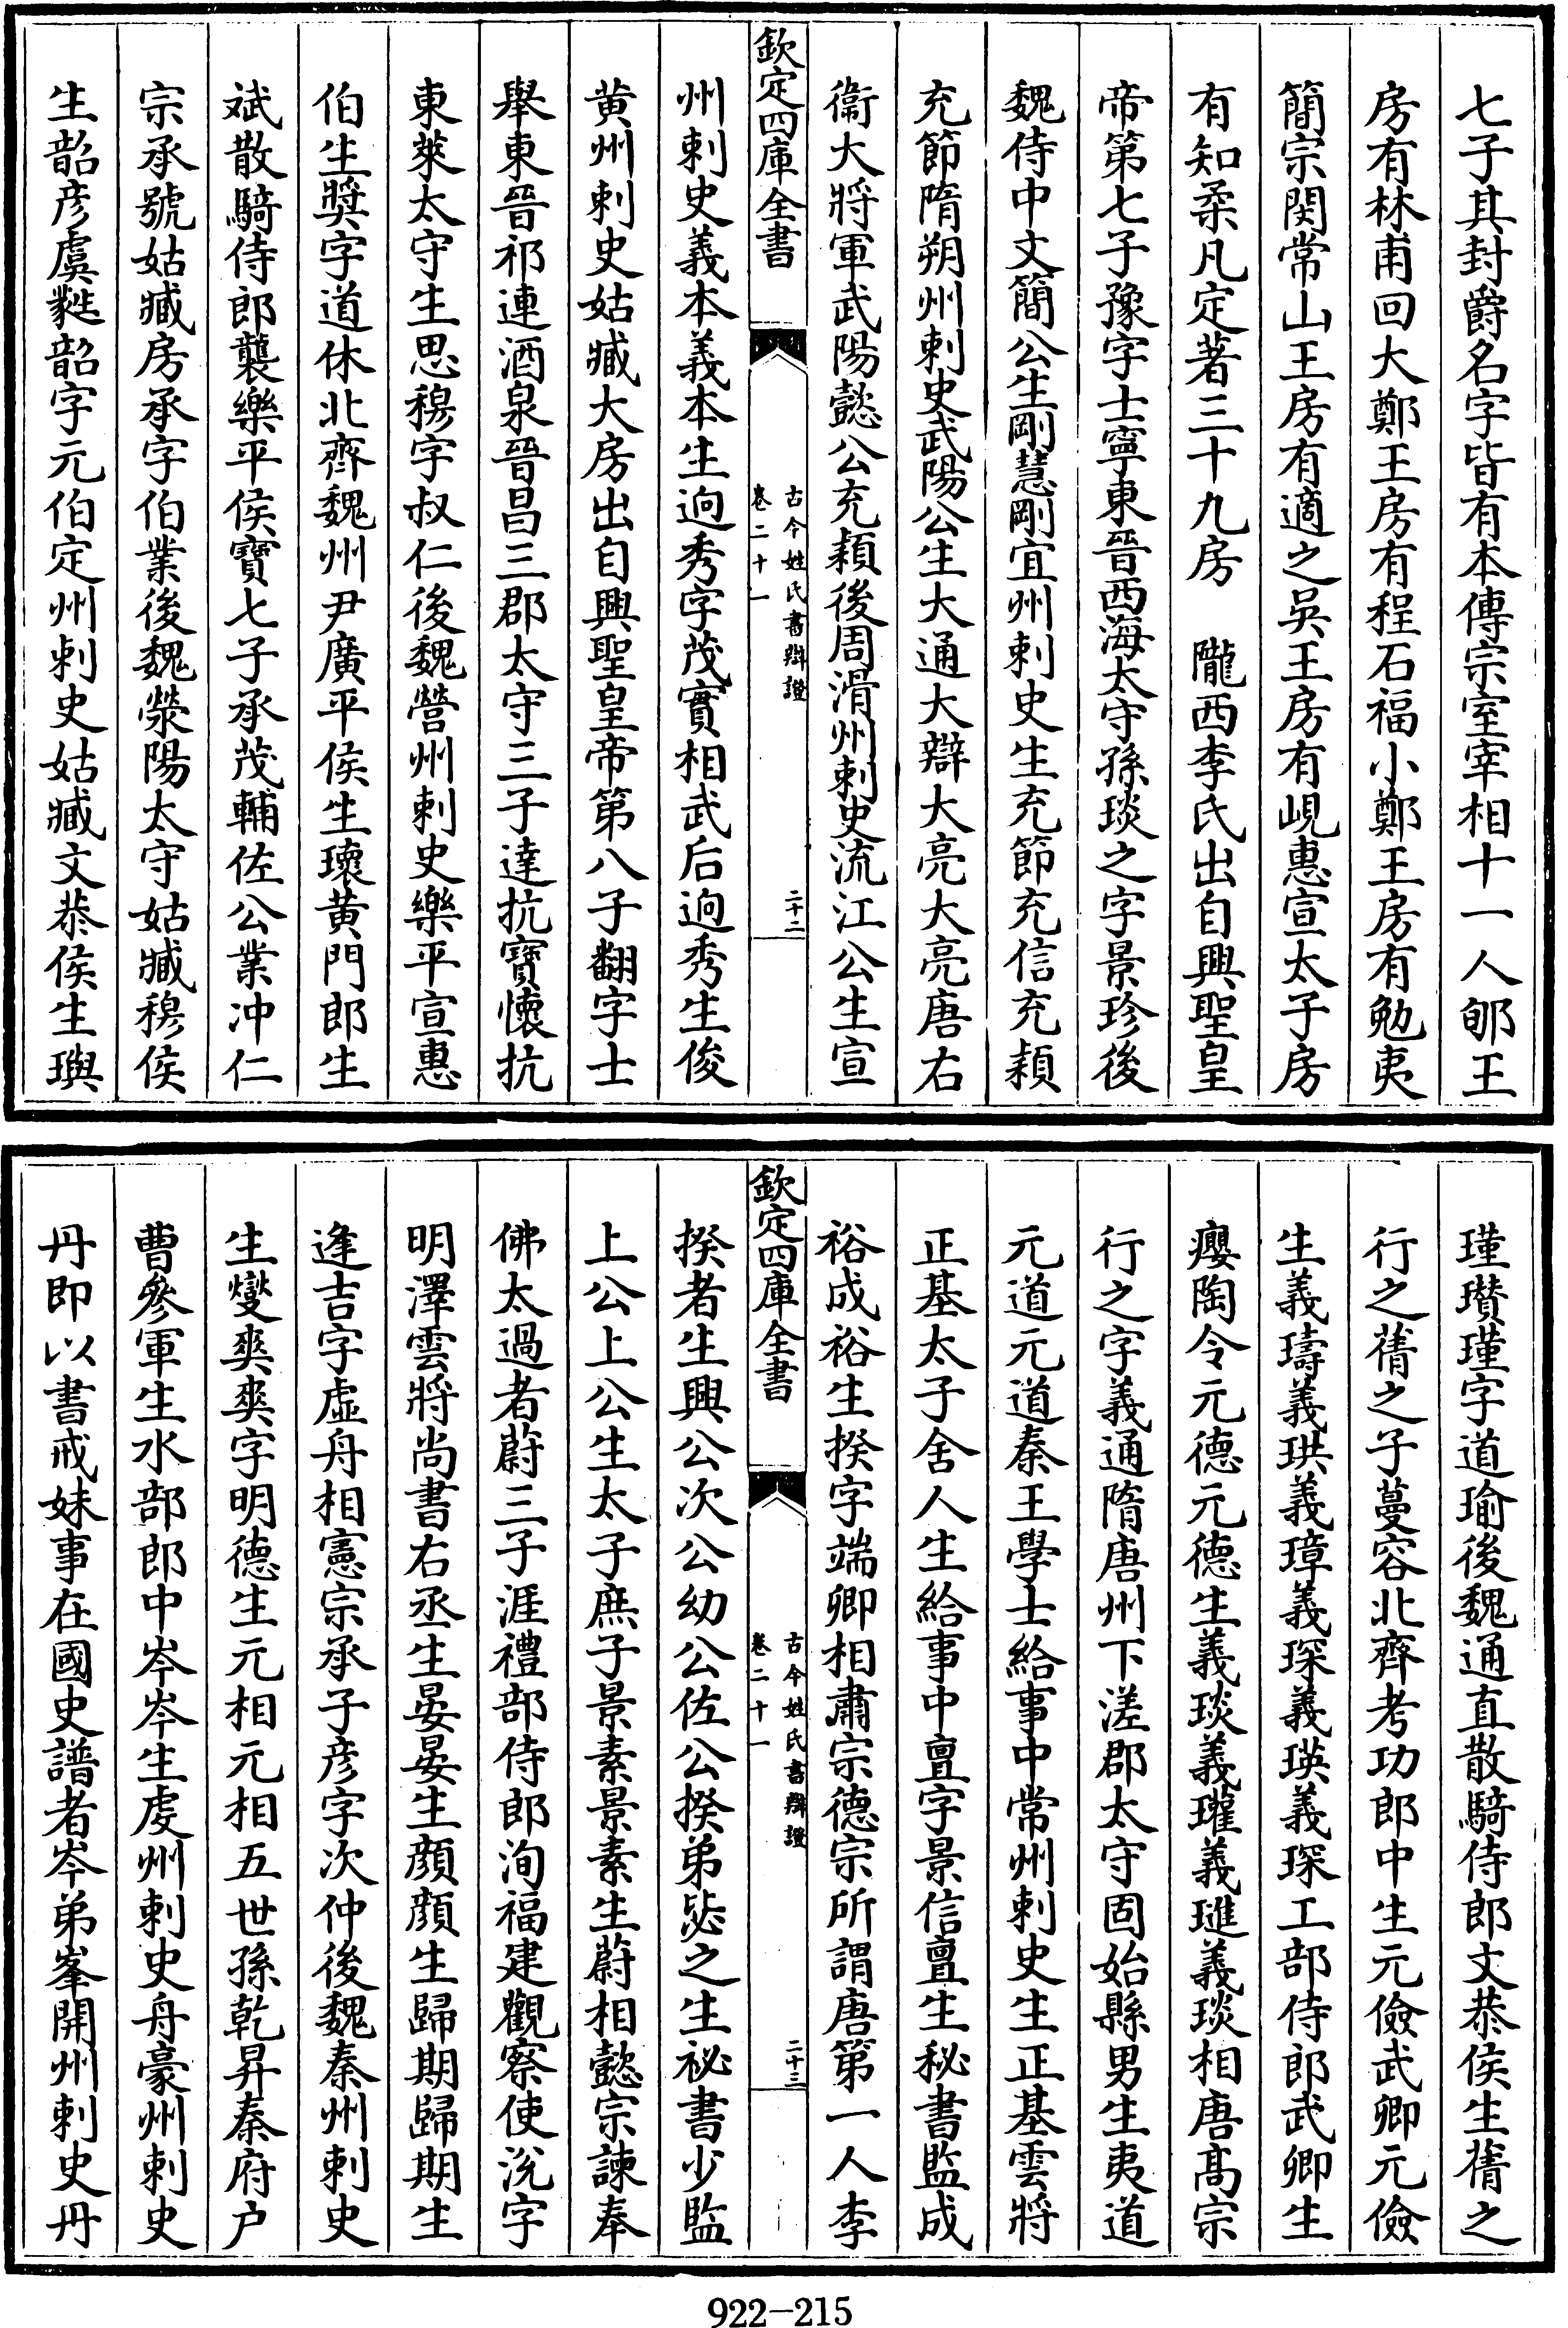 七子其封爵名字皆有本傳宗室宰相十一人郇王
房有林甫回大鄭王房有程石福小鄭王房有勉夷
簡宗閔常山王房有適之吳王房有峴惠宣太子房
有知柔凡定著三十九房　隴西李氏出自興聖皇
帝第七子豫字士寧東晉西海太守孫琰之字景珍後
魏侍中文簡公生剛慧剛宜州刺史生充節充信充穎
充節隋朔州刺史武陽公生大通大辯大亮大亮唐右
衞大將軍武陽懿公充穎後周滑州刺史流江公生宣
欽定四庫全書
古今姓氏書辯證
卷二十一
二十二
州刺史義本義本生逈秀字茂實相武后逈秀生俊
黄州刺史姑臧大房出自興聖皇帝第八子翻字士
舉東晉祁連酒泉晉昌三郡太守三子達抗寶懷抗
東萊太守生思穆字叔仁後魏營州刺史樂平宣惠
伯生奬字道休北齊魏州尹廣平侯生瓌黄門郎生
斌散騎侍郎襲樂平侯寶七子承茂輔佐公業冲仁
宗承號姑臧房承字伯業後魏滎陽太守姑臧穆侯
生韶彦虞蕤韶字元伯定州刺史姑臧文恭侯生璵
瑾瓚瑾字道瑜後魏通直散騎侍郎文恭侯生蒨之
行之蒨之子蔓容北齊考功郎中生元儉武卿元儉
生義璹義珙義璋義琛義瑛義琛工部侍郎武卿生
癭陶令元德元德生義琰義瓘義璡義琰相唐高宗
行之字義通隋唐州下溠郡太守固始縣男生夷道
元道元道秦王學士給事中常州刺史生正基雲將
正基太子舍人生給事中亶字景信亶生秘書監成
裕成裕生揆字端卿相肅宗德宗所謂唐第一人李
欽定四庫全書
古今姓氏書辯證
卷二十一
二十三
揆者生興公次公幼公佐公揆弟毖之生祕書少監
上公上公生太子庶子景素景素生蔚相懿宗諫奉
佛太過者蔚三子渥禮部侍郎洵福建觀察使沇字
明澤雲將尚書右丞生晏晏生顔顔生歸期歸期生
逢吉字虚舟相憲宗承子彦字次仲後魏秦州刺史
生燮奭奭字明德生元相元相五世孫乾昇秦府户
曹參軍生水部郎中岑岑生虔州刺史舟豪州刺史
丹即以書戒妹事在國史譜者岑弟峯開州刺史丹
922-215